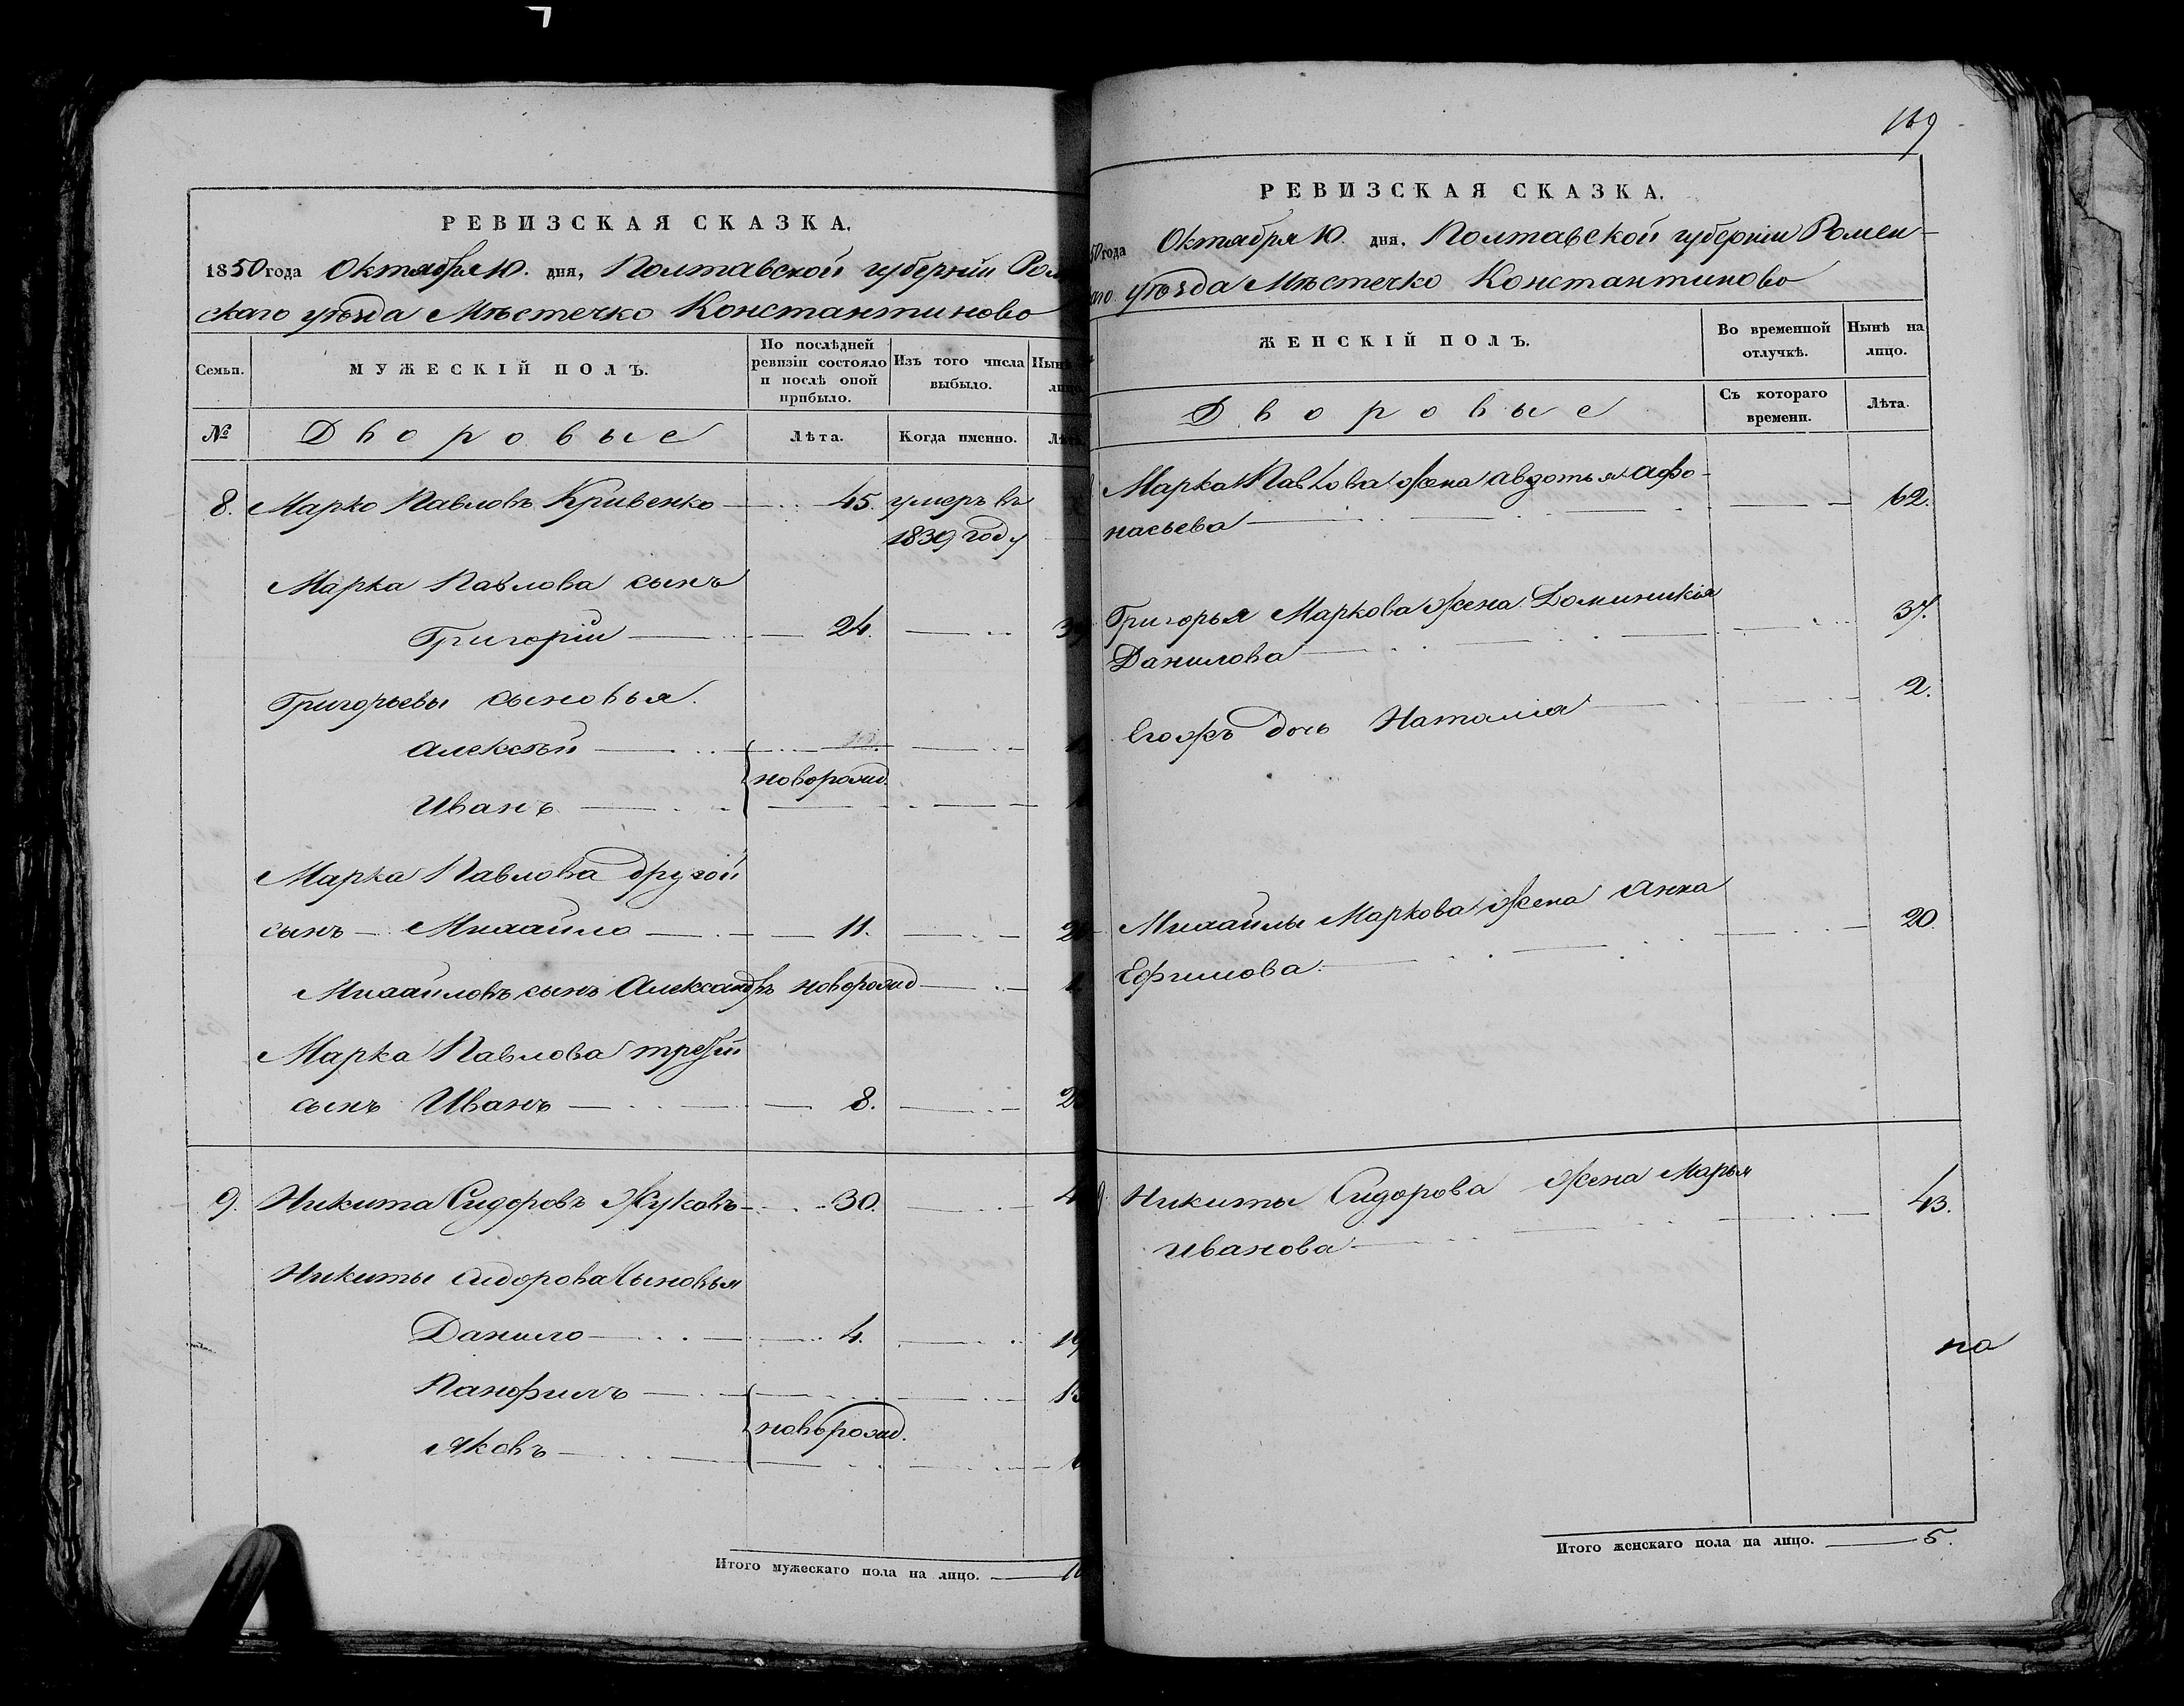 РЕВИЗСКАЯ СКАЗКА.
1850 года Октября 10. дня, Полтавской губерніи
скаго уѣзда Мѣстечко Константиново
Семьи. МУЖЕСКІЙ ПОЛЪ. По послѣдней ревизіи состояло и послѣ оной прибыло. Изъ того числа выбыло.
№ Дворовые Лѣта. Когда именно.
8. Марко Павловъ Кривенко 45. умеръ въ
1839 году
Марка Павлова сынъ
Григорій 24.
Григорьевы сыновья.
Алексѣй
новорожд.
Иванъ
Марка Павлова другой
сынъ Михайло 11.
Михайловъ сынъ Александръ новорожд
Марка Павлова третій
сынъ Иванъ 8.
9. Никита Сидоровъ Жуковъ 30.
Никиты Сидорова Сыновья
Данило 4. 19
Панфилъ
новорожд.
Яковъ
Итого мужескаго пола на лицо.
169
РЕВИЗСКАЯ СКАЗКА.
года Октября 10. дня, Полтавской губерніи Ромен-
уѣзда Мѣстечко Константиново
ЖЕНСКІЙ ПОЛЪ. Во временной отлучкѣ. Нынѣ на лицо.
Дворовые Съ котораго времени. Лѣта.
Марка Павлова жена Авдотья Афо-
насьева 62.
Григорья Маркова жена Доминикія
Данилова 37.
Егожъ дочь Наталія 2.
Михайлы Маркова жена Анна
Ефимова. 20.
Никиты Сидорова жена Марья
Иванова 43.
на
Итого женскаго пола на лицо. 5.